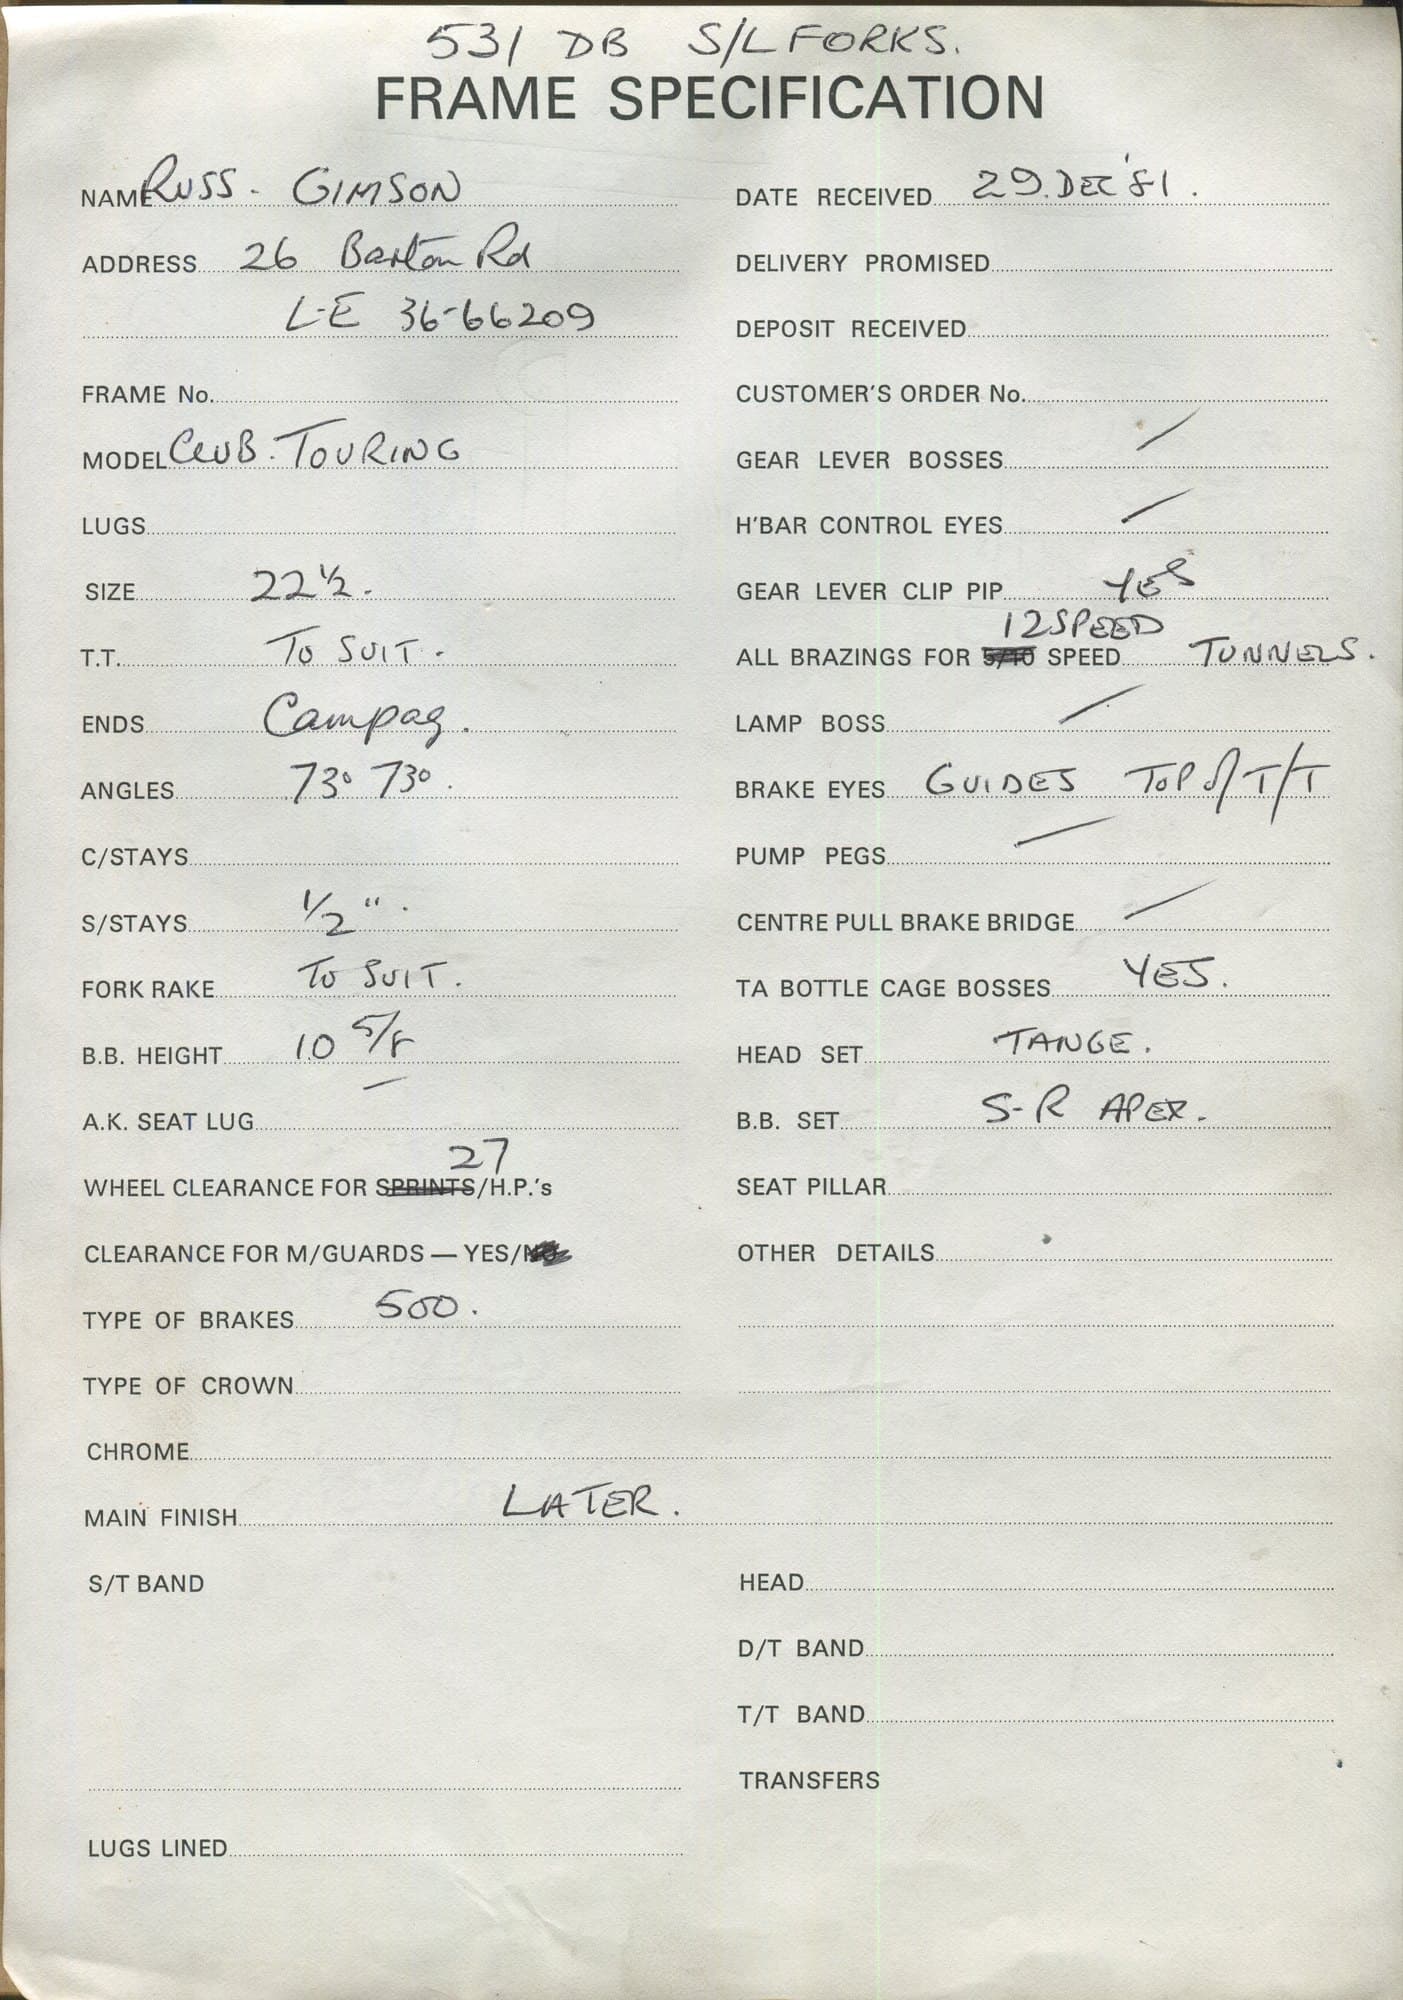 531 DB S/L FORKS.
FRAME SPECIFICATION
NAME RUSS. GIMSON
ADDRESS 26 Barton Rd
L-E 36-66209
FRAME No.
MODEL CLUB. TOURING
LUGS
SIZE 22 1/2.
T.T. TO SUIT.
ENDS Campag.
ANGLES 73° 73°.
C/STAYS
S/STAYS 1/2".
FORK RAKE TO SUIT.
B.B. HEIGHT 10 5/8
A.K. SEAT LUG —
27
WHEEL CLEARANCE FOR SPRINTS/H.P.'s
CLEARANCE FOR M/GUARDS — YES/NO
TYPE OF BRAKES 500.
TYPE OF CROWN
CHROME
MAIN FINISH LATER.
S/T BAND
LUGS LINED
DATE RECEIVED 29. DEC '81.
DELIVERY PROMISED
DEPOSIT RECEIVED
CUSTOMER'S ORDER No.
GEAR LEVER BOSSES /
H'BAR CONTROL EYES /
GEAR LEVER CLIP PIP YES
12 SPEED
ALL BRAZINGS FOR 5/10 SPEED TUNNELS.
LAMP BOSS /
BRAKE EYES GUIDES TOP O/T/T
PUMP PEGS /
CENTRE PULL BRAKE BRIDGE /
TA BOTTLE CAGE BOSSES YES.
HEAD SET TANGE.
B.B. SET S-R APEX.
SEAT PILLAR
OTHER DETAILS
HEAD
D/T BAND
T/T BAND
TRANSFERS